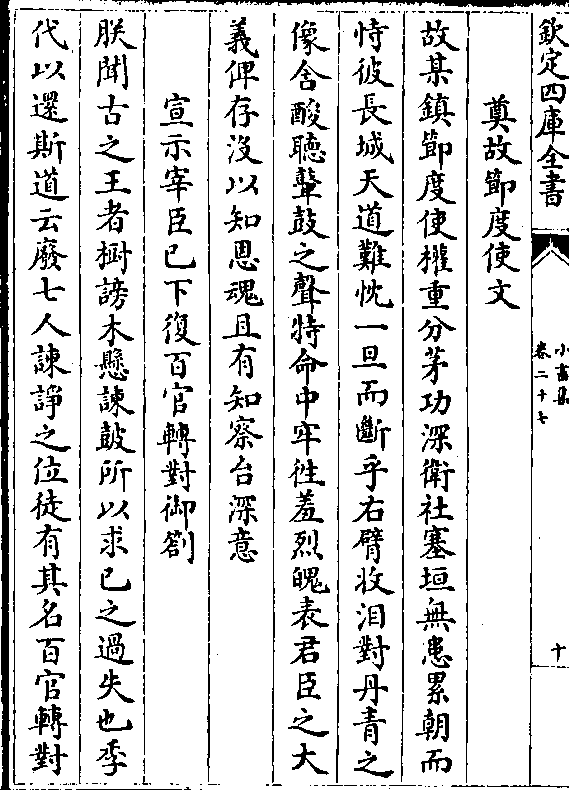 欽定四庫全書
小畜集
卷二十七
十
奠故節度使文
故某鎮節度使權重分茅功深衛社塞垣無患累朝而
恃彼長城天道難忱一旦而斷乎右臂收泪對丹青之
像含酸聽鼙鼓之聲特命中牢徃羞烈魄表君臣之大
義俾存沒以知恩魂且有知察台深意
宣示宰臣已下復百官轉對御劄
朕聞古之王者樹謗木懸諫鼓所以求己之過失也季
代以還斯道云廢七人諫諍之位徒有其名百官轉對